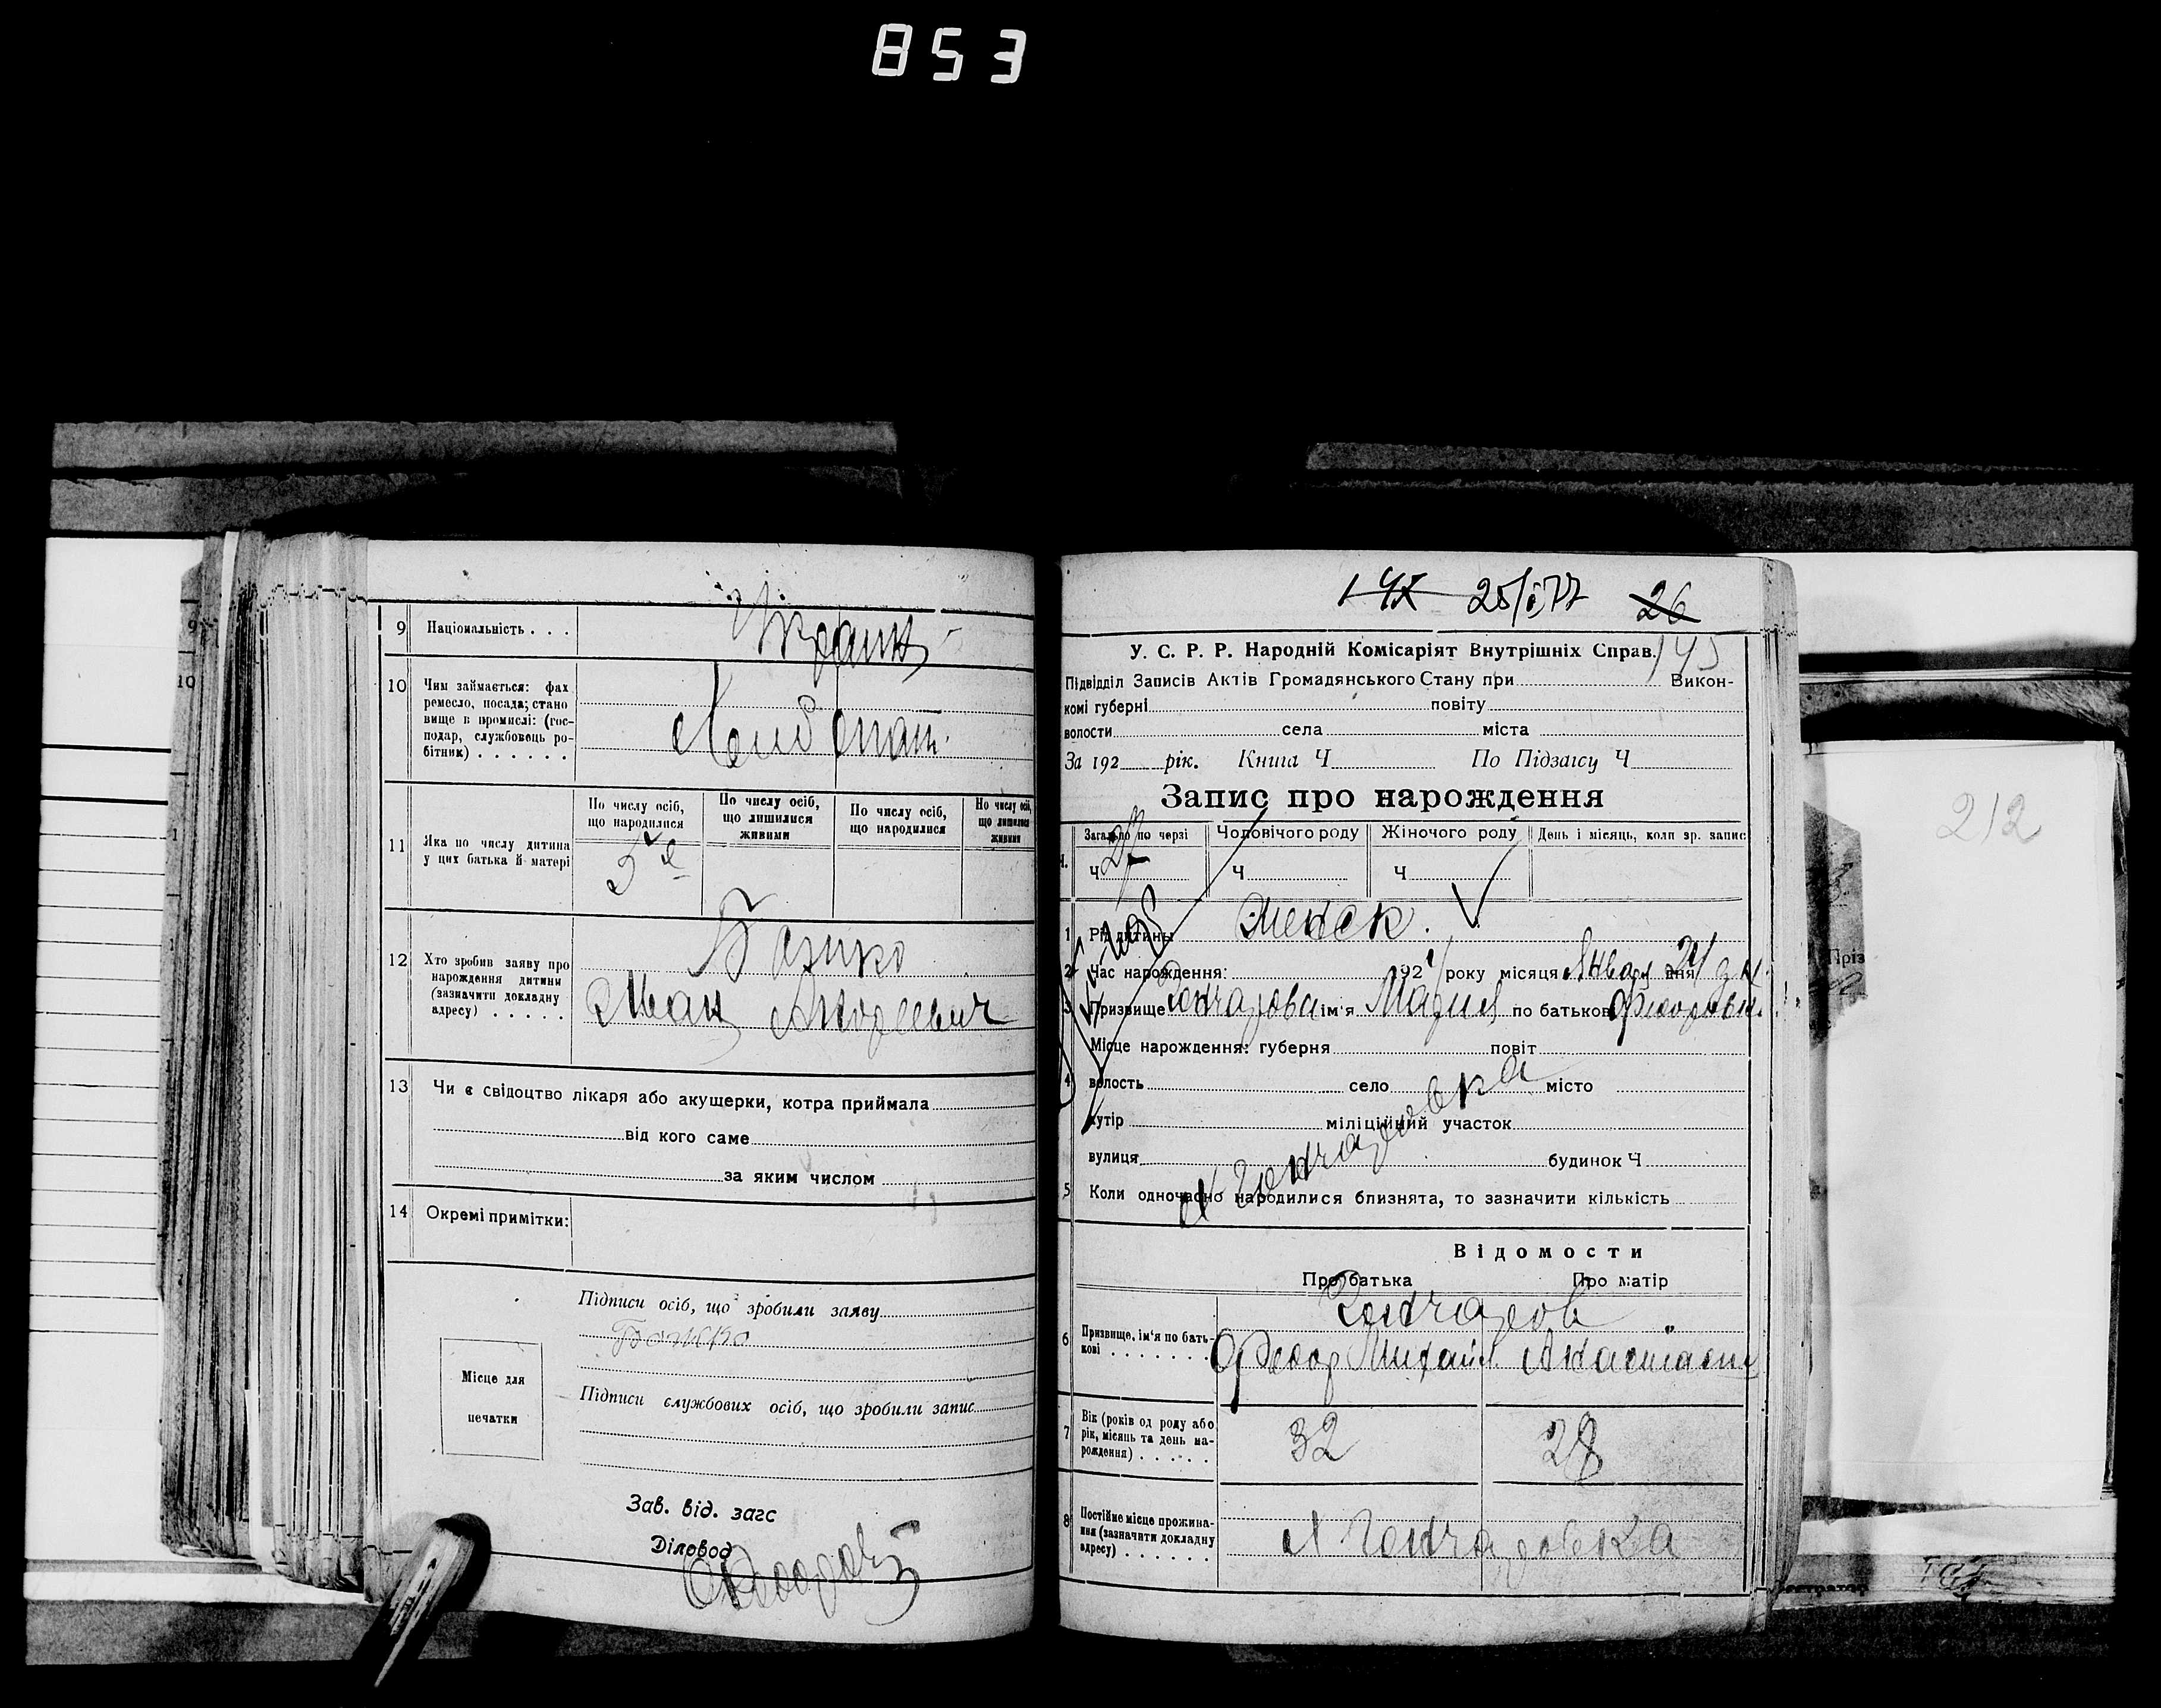 853
9 Національність . . .
Украин
10 Чим займається: фах
ремесло, посада; стано
вище в промислі: (гос-
подар, службовець ро-
бітник) . . . . . .
11 Яка по числу дитина
у цих батька й матері
По числу осіб,
що народилися
По числу осіб,
що лишилися
живими
По числу осіб,
що народилися
По числу осіб,
що лишилися
живими
12 Хто зробив заяву про
нарождення дитини
(зазначити докладну
адресу) . . . . .
Божко
Иван Андреевич
13 Чи є свідоцтво лікаря або акушерки, котра приймала
від кого саме
за яким числом
14 Окремі примітки:
Підписи осіб, що зробили заяву
Божко
Місце для
печатки
Підписи службових осіб, що зробили запис
Зав. від. загс
Діловод
26
У. С. Р. Р. Народній Комісаріят Внутрішніх Справ. 145
Підвідділ Записів Актів Громадянського Стану при Викон-
комі губерні повіту
волости села міста
За 192 рік. Книга Ч По Підзагсу Ч
Запис про нарождення
Загально по черзі Чоловічого роду Жіночого роду День і місяць, коли зр. запис
Ч Ч Ч
1 Рід дитини женск.
2 Час нарождення: 192 року місяця Января дня 24
3 Призвище Гончарова ім'я Мария по батькові Федоровн.
Місце нарождення: губерня повіт
4 волость село місто
хутір міліційний участок
вулиця будинок Ч
Гончаровка
5 Коли одночасно народилися близнята, то зазначити кількість
Відомости
Про батька Про матір
Гончаров
6 Призвище, ім'я по бать-
кові . . . . . . .
Федор Михайл Анастасия
7 Вік (років од роду або
рік, місяць та день на-
рождення) . . . . . .
32 28
8 Постійне місце прожива-
ння (зазначити докладну
адресу) . . . . . .
Гончаровка
212